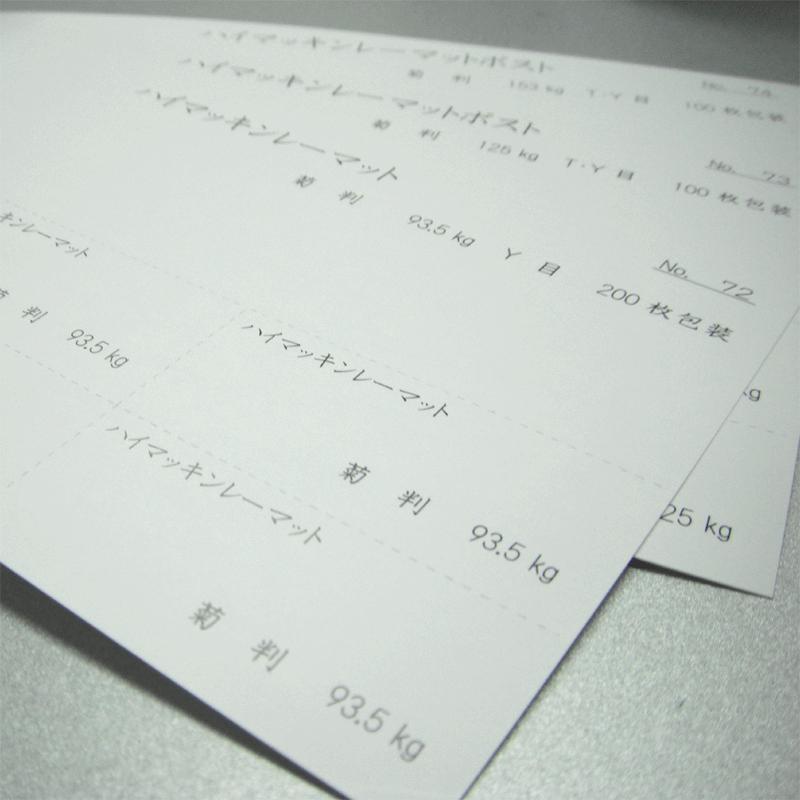 ハイマッキンレーマットポスト
菊 判 153 kg T・Y 目 100 枚包装
No. 74
ハイマッキンレーマットポスト
菊 判 125 kg T・Y 目 100 枚包装
No. 73
ハイマッキンレーマット
菊 判 93.5 kg Y 目 200 枚包装
No. 72
キンレーマット
判 93.5 kg
ハイマッキンレーマット
菊 判 93.5 kg
ハイマッキンレーマット
菊 判 93.5 kg
kg
25 kg